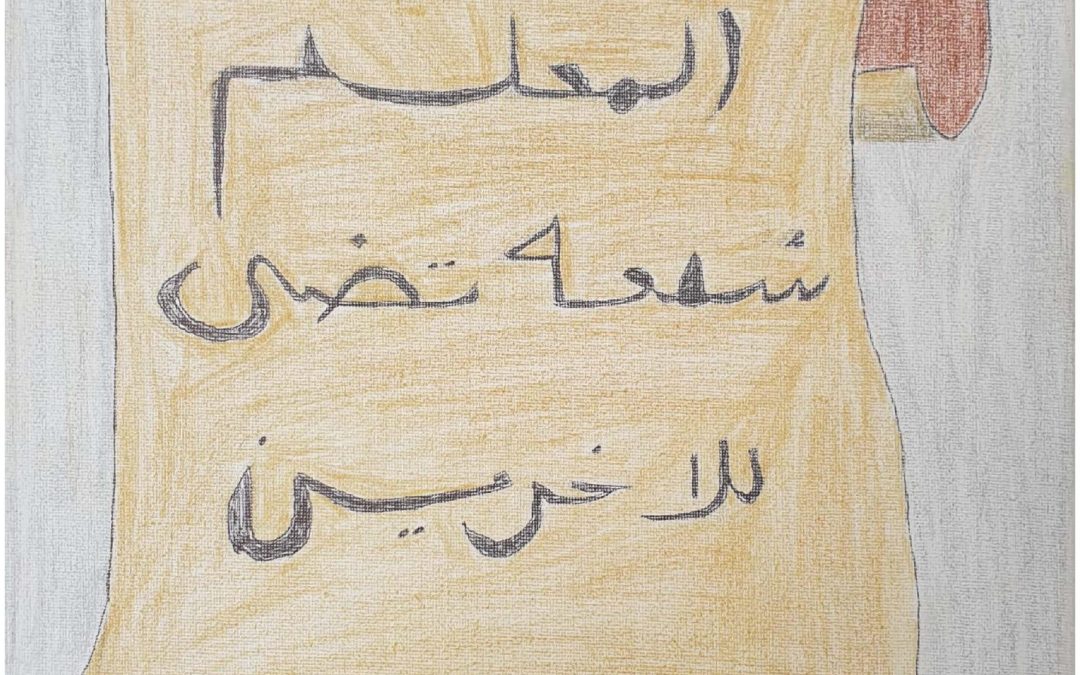 المعلم
شمعه تضى
للاخرين